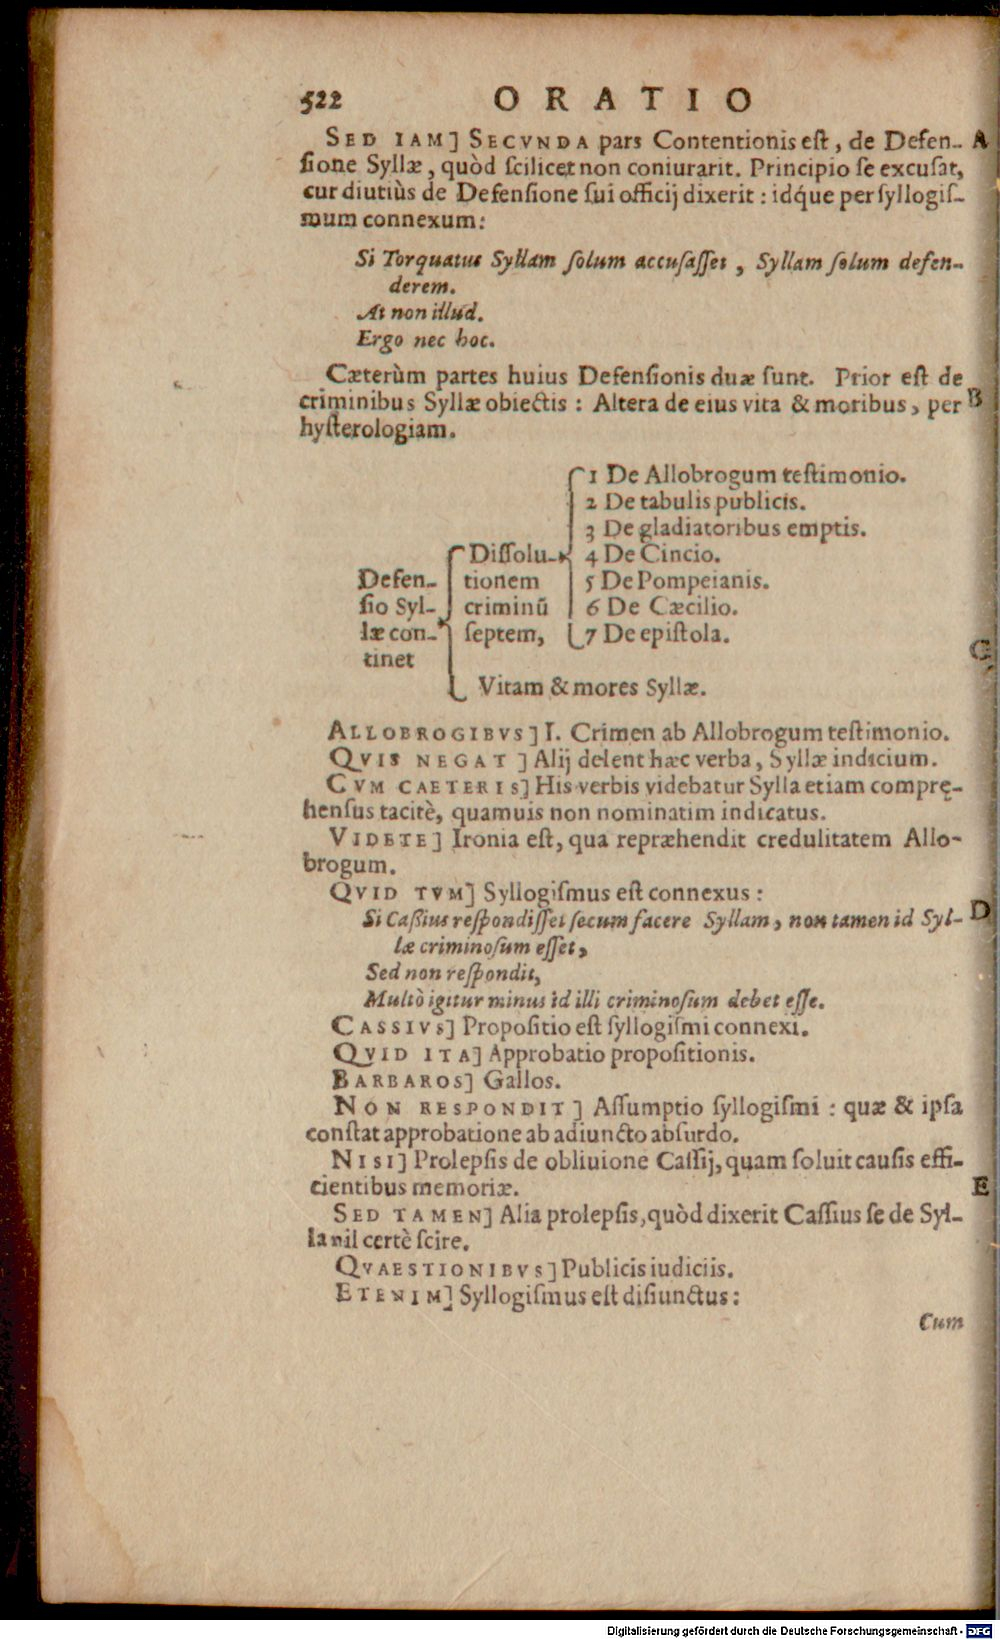 522 ORATIO
SED IAM] SECVNDA pars Contentionis eſt, de Defen- A
ſione Syllæ, quòd ſcilicet non coniurarit. Principio ſe excuſat,
cur diutiùs de Defenſione ſui officij dixerit : idq́ue per ſyllogiſ-
mum connexum:
Si Torquatus Syllam ſolum accuſaſſet, Syllam ſolum defen-
derem.
At non illud.
Ergo nec hoc.
Cæterùm partes huius Defenſionis duæ ſunt. Prior eſt de
criminibus Syllæ obiectis : Altera de eius vita & moribus, per B
hyſterologiam.
1 De Allobrogum teſtimonio.
2 De tabulis publicis.
3 De gladiatoribus emptis.
Diſſolu- 4 De Cincio.
Defen- tionem 5 De Pompeianis.
ſio Syl- criminū 6 De Cæcilio.
læ con- ſeptem, 7 De epiſtola.
C
tinet
Vitam & mores Syllæ.
ALLOBROGIBVS] I. Crimen ab Allobrogum teſtimonio.
QVIS NEGAT] Alij delent hæc verba, Syllæ indicium.
CVM CAETERIS] His verbis videbatur Sylla etiam comprę-
henſus tacitè, quamuis non nominatim indicatus.
VIDETE] Ironia eſt, qua repræhendit credulitatem Allo-
brogum.
QVID TVM] Syllogiſmus eſt connexus :
Si Caßius reſpondiſſet ſecum facere Syllam, non tamen id Syl- D
læ criminoſum eſſet,
Sed non reſpondit,
Multò igitur minus id illi criminoſum debet eſſe.
CASSIVS] Propoſitio eſt ſyllogiſmi connexi.
QVID ITA] Approbatio propoſitionis.
BARBAROS] Gallos.
NON RESPONDIT] Aſſumptio ſyllogiſmi : quæ & ipſa
conſtat approbatione ab adiuncto abſurdo.
NISI] Prolepſis de obliuione Caſſij, quam ſoluit cauſis effi-
cientibus memoriæ. E
SED TAMEN] Alia prolepſis, quòd dixerit Caſſius ſe de Syl-
la nil certè ſcire.
QVAESTIONIBVS] Publicis iudiciis.
ETENIM] Syllogiſmus eſt diſiunctus:
Cum
Digitalisierung gefördert durch die Deutsche Forschungsgemeinschaft - DFG